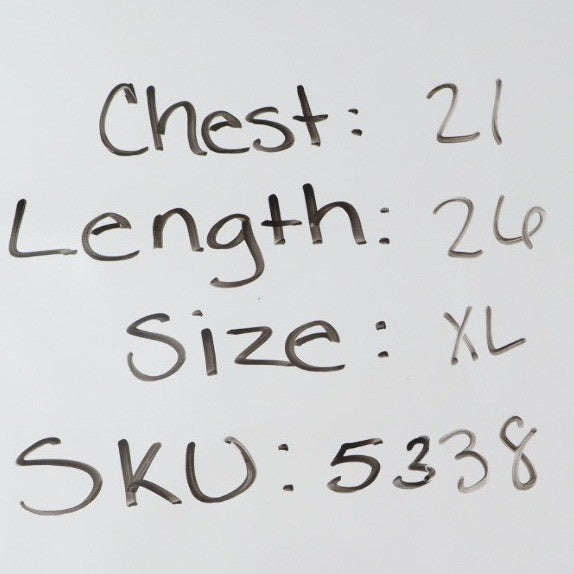 Chest: 21
Length: 26
Size: XL
SKU: 5338